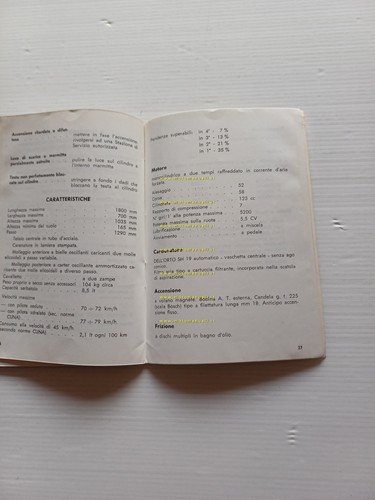 Accensione ritardata o difet-
tosa
mettere in fase l'accensione,
rivolgersi ad una Stazione di
Servizio autorizzata
Luce di scarico e marmitta
parzialmente ostruite
pulire la luce sul cilindro e
l'interno marmitta
Testa non perfettamente bloc-
cata sul cilindro
stringere a fondo i dadi che
bloccano la testa al cilindro
CARATTERISTICHE
Lunghezza massima 1800 mm
Larghezza massima 700 mm
Altezza massima 1035 mm
Altezza minima del suolo 165 mm
Passo 1290 mm
Telaio centrale in tubo d'acciaio.
Carenatura in lamiera stampata.
Molleggio anteriore a bielle oscillanti caricanti due molle
elicoidali a passo variabile.
Molleggio posteriore a carter oscillante ammortizzato ca-
ricante due molle elicoidali a diverso passo.
Cavalletto a due zampe
Peso proprio a secco senza accessori 104 kg circa
Capacità serbatoio 8,5 lt
Velocità massima
— con pilota seduto 70 ÷ 72 km/h
— con pilota sdraiato (sec. norme
CUNA) 77 ÷ 79 km/h
Consumo alla velocità di 45 km/h
secondo norme CUNA) 2,1 lt ogni 100 km
Pendenze superabili: in 4ª - 7 %
in 3ª - 13 %
in 2ª - 21 %
in 1ª - 35 %
Motore
monocilindrico a due tempi raffreddato in corrente d'aria
forzata
Alesaggio 52
Corsa 58
Cilindrata 123 cc
Rapporto di compressione 7
N° giri 1' alla potenza massima 5200
Potenza massima 5,5 CV
Lubrificazione a miscela
Avviamento a pedale
Carburatore
DELL'ORTO SH 19 automatico - vaschetta centrale - senza ago
conico.
Filtro aria tipo a cartuccia filtrante, incorporato nella scatola
di aspirazione.
Accensione
a volano magnete. Bobina A. T. esterna. Candela g. t. 225
(scala Bosch) tipo a filettatura lunga mm 18. Anticipo accen-
sione fisso.
Frizione
a dischi multipli in bagno d'olio.
23